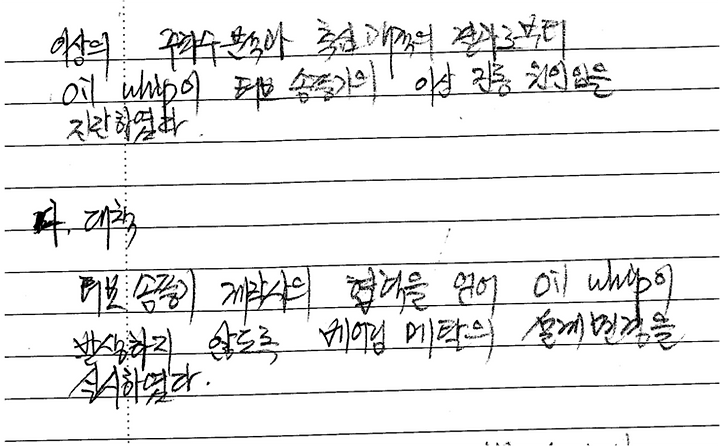 이상의 주파수 분석과 축심 궤적의 결과로부터
oil whip이 터보 송풍기의 이상 진동 원인임을
진단하였다.
다. 대책
터보 송풍기 제작사의 협력을 얻어 oil whip이
발생하지 않도록 베어링 메탈의 설계변경을
실시하였다.